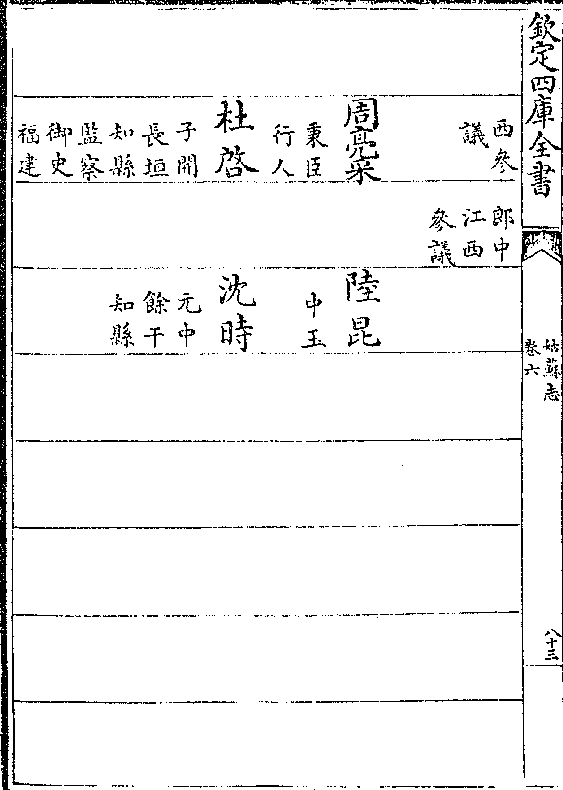 欽定四庫全書
姑蘇志
卷六
八十三
西參
議
周亮采
秉臣
行人
杜啓
子開
長垣
知縣
監察
御史
福建
郎中
江西
參議
陸昆
中玉
沈時
元中
餘干
知縣